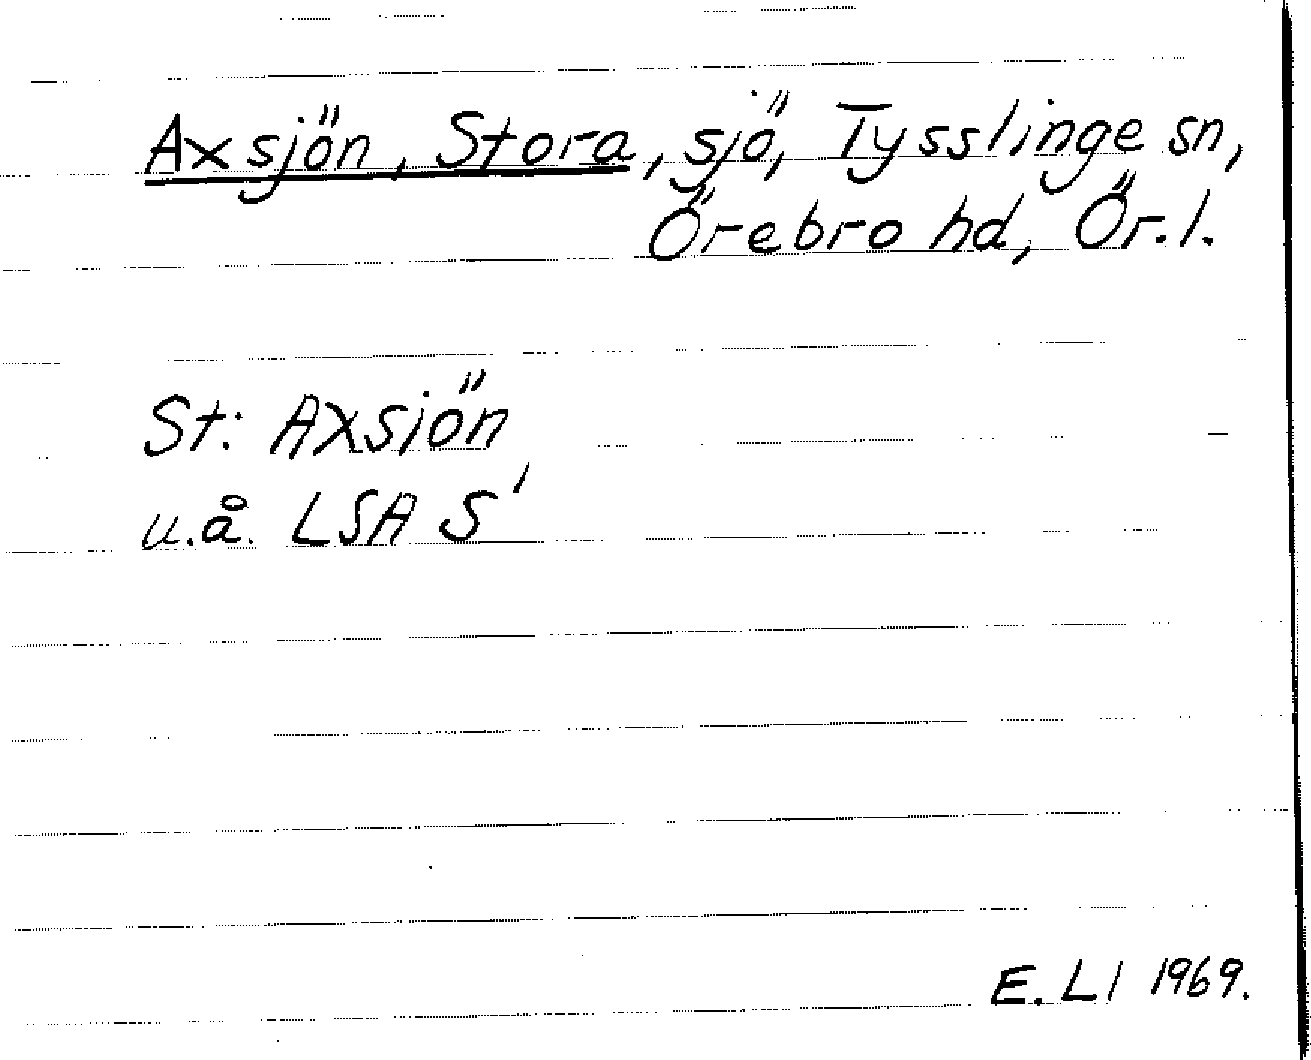 Axsjön, Stora, sjö, Tysslinge sn,
Örebro hd, Ör. l.
St: Axsiön
u.å. LSA S'
E. Ll 1969.